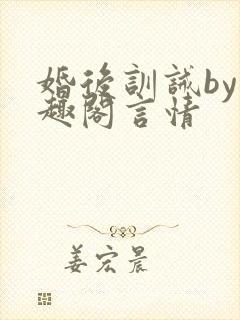 婚後訓誡by
趣閣言情
姜宏晨